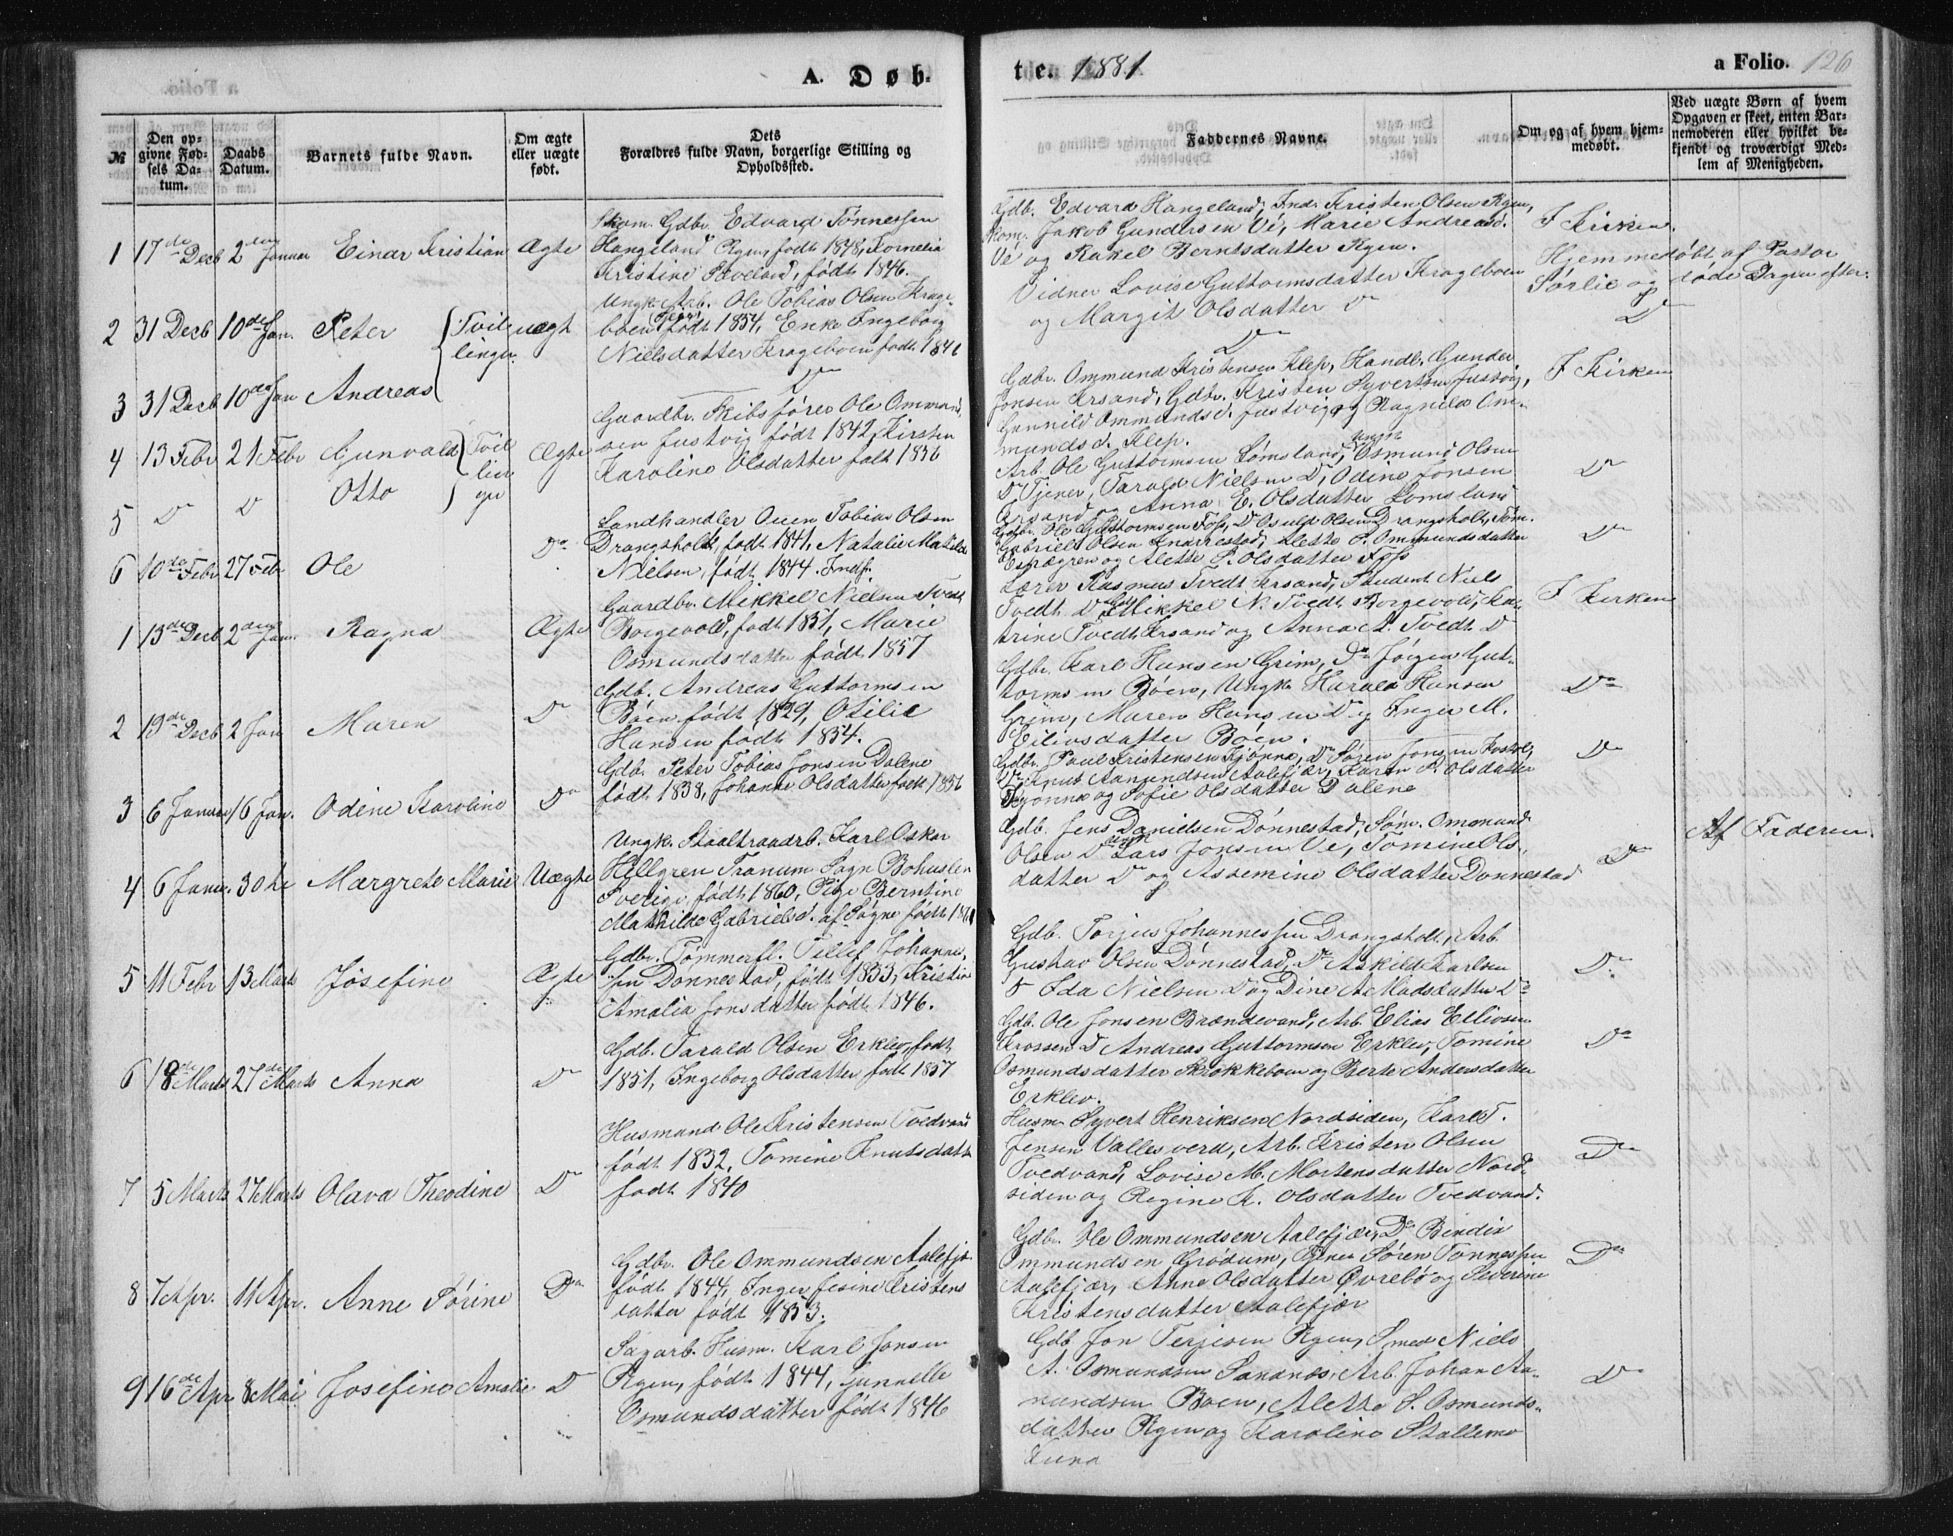 A. Døb-
te. 1881
a Folio. 126
№
Den op-
givne Fød-
sels Da-
tum.
Daabs
Datum.
Barnets fulde Navn.
Om ægte
eller uægte
født.
Dets
Forældres fulde Navn, borgerlige Stilling og
Opholdssted.
Faddernes Navne.
Om og af hvem hjem-
medøbt.
Ved uægte Børn af hvem
Opgaven er skeet, enten Bar-
nemoderen eller hvilket be-
kjendt og troværdigt Med-
lem af Menigheden.
1 17de Decb 2den Januar Einar Kristian Ægte
Skom. Gdbr. Edvard Tønnessen
Hangeland Rgen, født 1848, Kornelia
Kristine født 1846.
Gdb. Edvard Hangeland, Ind. Kristen Olsen Rgen,
Skom. Jakob Gundersen Vé, Marie Andreasd.
Vé og Rakel Berntsdatter Rgen.
I Kirken
2 31 Decb 10de Jan. Peter { Tvil-
linger uægt
Ungk. Arb. Ole Tobias Olsen Krage-
boen født 1854, Enke Ingeborg
Nielsdatter Krageboen født 1846
Vidner Lovise Guttormsdatter Krageboen
og Margit Olsdatter Do
Hjemmedøbt af Pastor
Sørlie og døde Dagen efter.
3 31 Decb 10de Jan Andreas
Do
Do
Do
4 13 Febr 21 Febr Gunvald { Tvil-
lin-
ger Ægte
Gaardbr. Skibsfører Ole Ommund-
sen Justvig født 1842, Kirsten
Karoline Olsdatter født 1856
Gdbr. Ommund Kristensen Klep, Handl. Gunder
Jonsen Krsand, Gdbr. Kristen Syvertsen Justvig,
Gunnild Ommundsd. Justvig og Ragnild Om-
mundsd. Klep.
I Kirken
5 Do Do Otto
Arb. Ole Guttormsen Lømsland, Ungk. Osmund Olsen
Do Tjener, Tarald Nielsen Do, Odine Jonsen
Krsand og Anna E. Olsdatter Lomsland
Do
6 10de Febr 27 Febr Ole Do
Landhandler Ouen Tobias Olsen
Drangsholt, født 1841, Natalie Matilde
Nielsen, født 1844. Indf.
Gdbr. Ole Guttormsen Foss, Do Osuld Olsen Drangsholt, Tøm.
Gabriel Olsen Andrestad, Alette S. Ommundsdatter
og Alette P. Olsdatter Foss
Do
1 13de Decb 2den Jan. Ragna Ægte
Gaardbr. Mikkel Nielsen Tvedt
Borgevold, født 1851, Marie
Osmundsdatter født 1857
Lærer Rasmus Tvedt Krsand, Student Niels
Tvedt Do Gdb. Mikkel N. Tvedt Borgevold, Ka-
trine Tvedt Krsand og Anna A. Tvedt Do
I Kirken
2 19de Decb 2 Jan Maren Do
Gdb. Andreas Guttormsen
Bóen født 1829, Otilie
Hansen født 1854.
Gdbr. Karl Hansen Grim, Do Jørgen Gut-
tormsen Bóen, Ungk. Harald Hansen
Grim, Maren Hansen Do og Inger M.
Eiliosdatter Boén.
Do
3 6 Januar 16 Jan. Odine Karoline Do
Gdb. Peter Tobias Jonsen Dalene
født 1838, Johanne Olsdatter født 1856
Gdbr. Paul Kristensen Kjønna, Do Søren Jonsen Kostøl,
Do Knut Aanundsen Aalefjær, Karen P. Olsdatter
Kjønna og Sofie Olsdatter Dalene
Do
4 6 Janu. 30 te Margrete Marie Uægte
Ungk. Staaltraadrb. Karl Oskar
Hellgren Tranum Sogn Bohuslen
Sverige, født 1860, Pige Berntine
Mathilde Gabrielsd. af Søgne født 1861
Gdb. Jens Danielsen Dønnestad, Søm. Ommund
Olsen Do Ungk Lars Jonsen Vé, Tomine Ols-
datter Do og Assemine Olsdatter Dønnestad
Do
Af Faderen.
5 11 Febr 13 Marts Jósefine Ægte
Gdbr. Tømmerfl. Tellef Johannes-
sen Dønnestad, født 1853, Kristine
Amalia Jonsdatter født 1846.
Gdb. Torjus Johannessen Drangsholt, Arb.
Gustav Olsen Dønnestad, Do Askild Karlsen
Do Ida Nielsen Do og Dine A. Madsdatter Do
Do
6 18de Marts 27de Marts Anna Do
Gdb. Tarald Olsen Erklev, født
1851, Ingeborg Olsdatter født 1857
Gdb. Ole Jonsen Brændevand, Arb. Elias Ellivsen
Krossen Do Andreas Guttormsen Erklev, Tomine
Osmundsdatter Skrokkeboen og Berte Andersdatter
Erklev.
Do
7 5 Marts 27 Marts Olava Theodine Do
Husmand Ole Kristensen Tvedvand
født 1832, Tomine Knutsdatt
født 1840
Husm. Syvert Henriksen Nordsiden, Karl T.
Jensen Vallesverd, Arb. Kristen Olsen
Tvedvand, Lovise M. Mortensdatter Nord-
siden og Regine K. Olsdatter Tvedvand.
Do
8 7 Apr. 11 Apr. Anne Sørine Do
Gdbr. Ole Ommundsen Aalefjæ
født 1844, Inger Jesine Kristens-
datter født 1853.
Gdbr. Ole Ommundsen Aalefjær, Do Bendix
Ommundsen Gródum, Tjener Søren Tønnessen
Aalefjær, Anne Olsdatter Øvrebó og Severine
Kristensdatter Aalefjær
Do
9 16de Apr 8 Mai Josefine Amalie Do
Sagarb. Husm. Karl Jonsen
Rgen, født 1844, Gunnelle
Osmundsdatter født 1846
Gdb Jon Terjesen Rgen, Smed Niels
A. Osmundsen Sandnes, Arb. Johan Aa-
nundsen Boen, Alette S. Osmunds-
datter Rgen og Karoline Stallemo